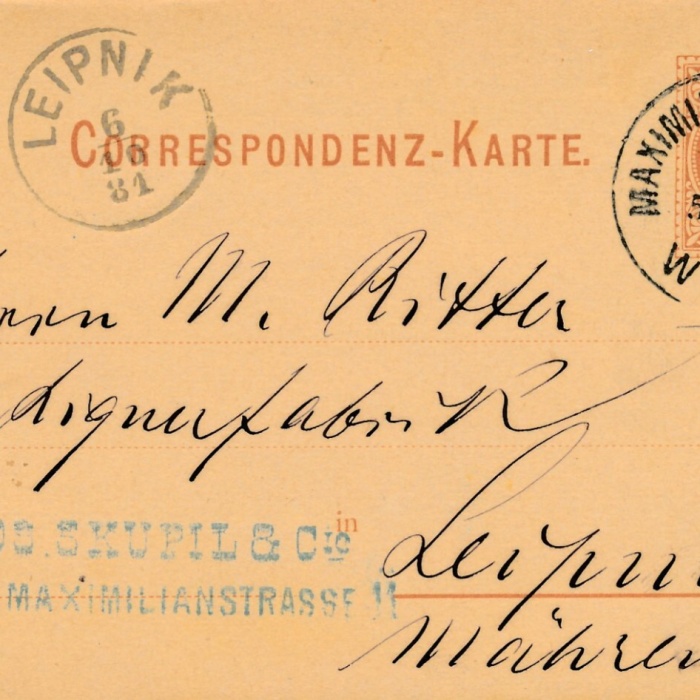 LEIPNIK
6
10
81
CORRESPONDENZ-KARTE.
MAXIMI
W
rrn M. Ritter
Liqueurfabrik
in
OS. SKUPIL & Cie
MAXIMILIANSTRASSE 11
Leipni
Mähren